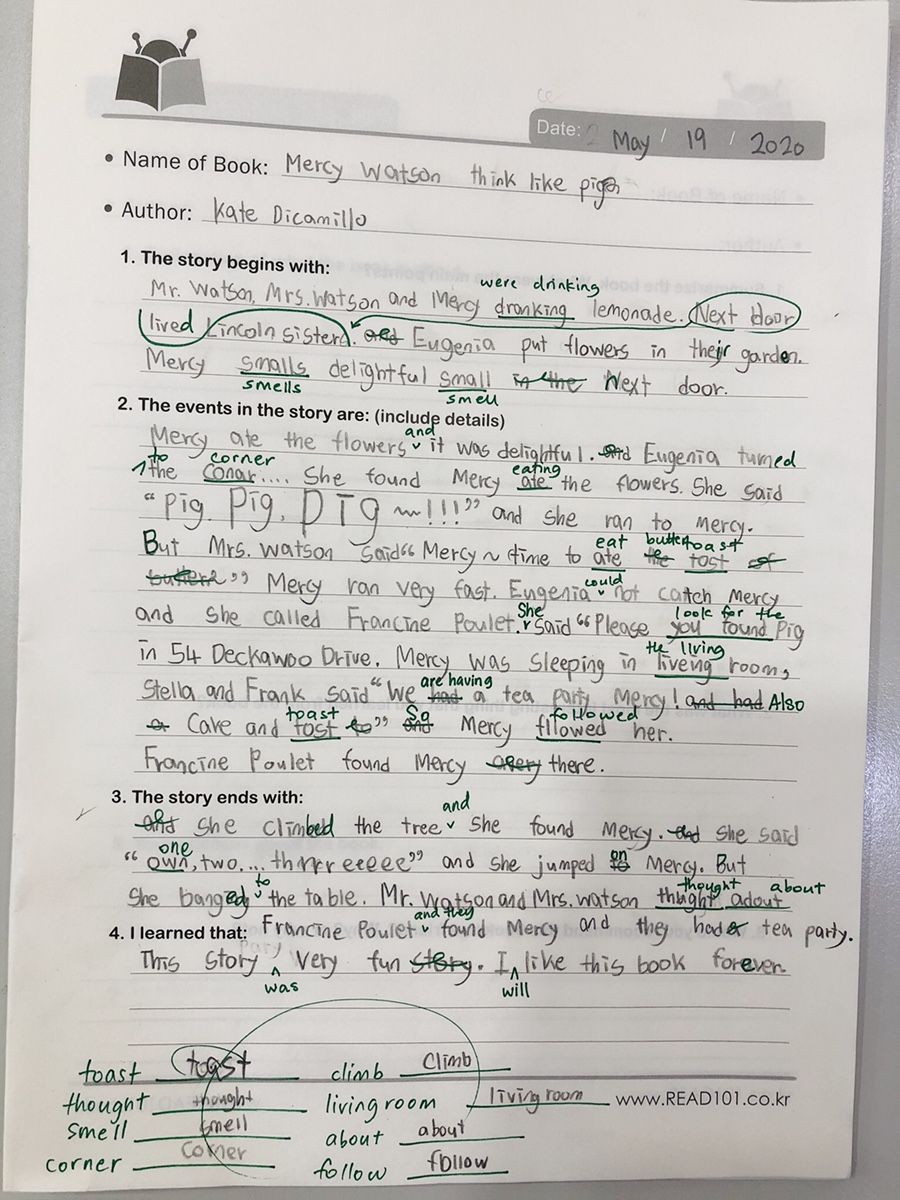 Date: May / 19 / 2020
• Name of Book: Mercy Watson think like pig
• Author: Kate Dicamillo
1. The story begins with:
were drinking
Mr. Watson, Mrs. Watson and Mercy dranking lemonade. Next door
lived Lincoln sisters. and Eugenia put flowers in their garden.
Mercy smalls delightful small in the Next door.
smells smell
2. The events in the story are: (include details)
and
Mercy ate the flowers it was delightful. and Eugenia turned
to corner eating
the conar.... She found Mercy ate the flowers. She said
"Pig. Pig. PIG ~!!!" and she ran to Mercy.
eat butter toast
But Mrs. Watson said "Mercy~ time to ate the tost of
could
butter" Mercy ran very fast. Eugenia not catch Mercy
She look for the
and she called Francine Poulet. Said "Please you found Pig
the living
in 54 Deckawoo Drive. Mercy was sleeping in liveing room,
are having
Stella and Frank said "We had a tea party Mercy! and had Also
toast So followed
a Cave and tost to" and Mercy fllowed her.
Francine Poulet found Mercy there.
3. The story ends with:
and
and she climbed the tree She found Mercy. and She said
one on
"own, two... thrrreeeee" and she jumped to Mercy. But
to thought about
She banged the table. Mr. Watson and Mrs. watson thught adout
and they
4. I learned that: Francine Poulet found Mercy and they had a tea party.
This Story Very fun story. I like this book forever.
was will
toast toast climb Climb
thought thought living room living room www.READ101.co.kr
smell smell about about
corner Corner follow follow